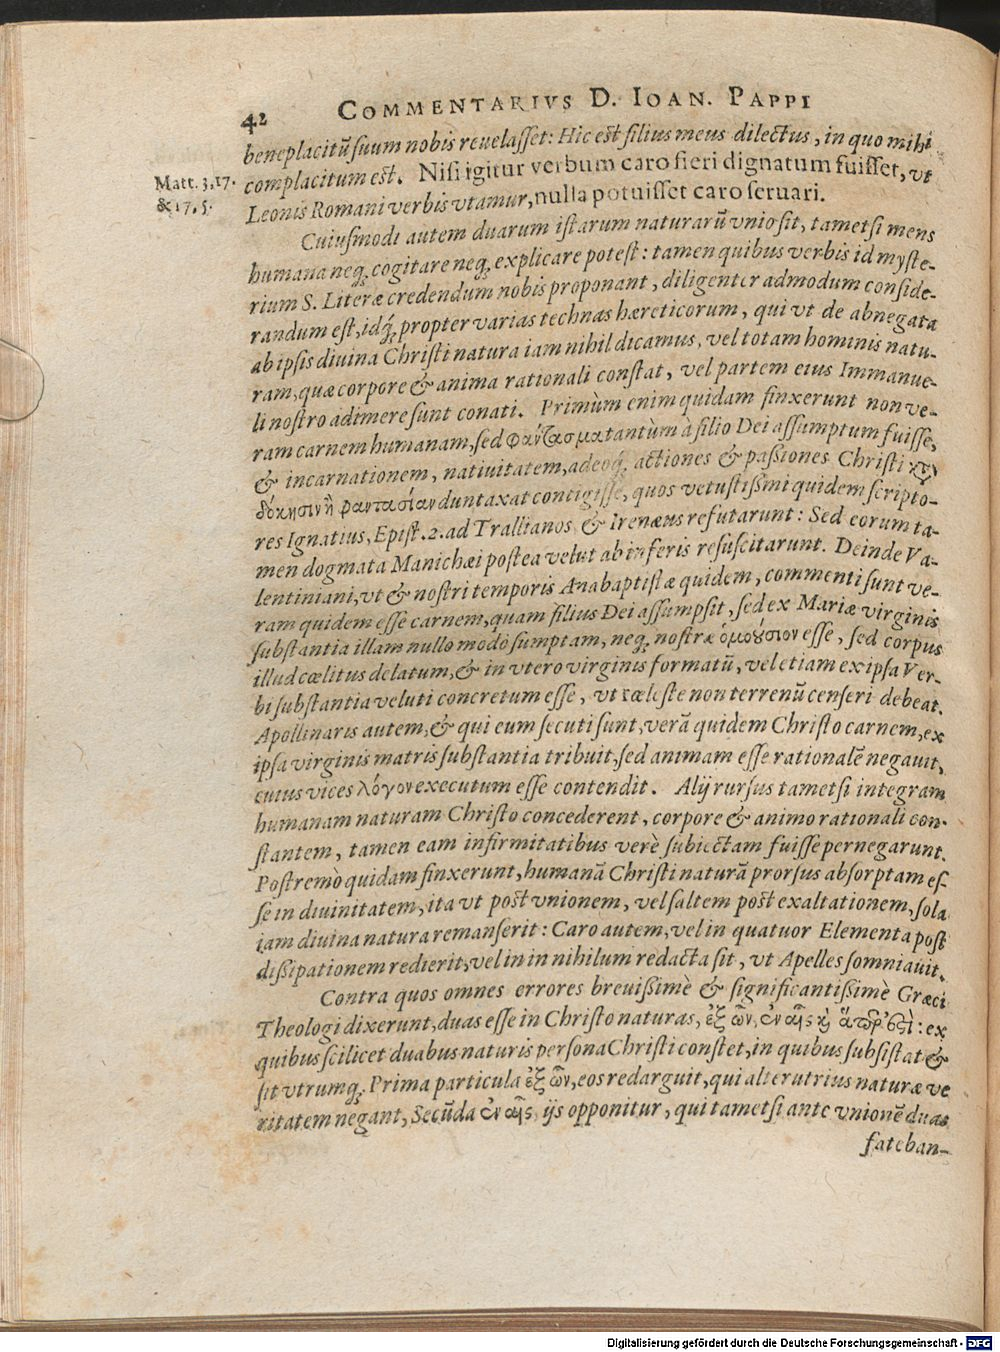 42 COMMENTARIVS D. IOAN. PAPPI
beneplacitũ suum nobis reuelasset: Hic est filius meus dilectus, in quo mihi
Matt. 3.17.
& 17.5.
complacitum est. Nisi igitur verbum caro fieri dignatum fuisset, vt
Leonis Romani verbis vtamur, nulla potuisset caro seruari.
Cuiusmodi autem duarum istarum naturarũ vnio sit, tametsi mens
humana neq; cogitare neq; explicare potest: tamen quibus verbis id myste-
rium S. Literæ credendum nobis proponant, diligenter admodum conside-
randum est, idq́; propter varias technas hæreticorum, qui vt de abnegata
ab ipsis diuina Christi natura iam nihil dicamus, vel totam hominis natu-
ram, quæ corpore & anima rationali constat, vel partem eius Immanue-
li nostro adimere sunt conati. Primùm enim quidam finxerunt non ve-
ram carnem humanam, sed φαντασμα tantùm à filio Dei assumptum fuisse,
& incarnationem, natiuitatem, adeoq́; actiones & passiones Christi κτ
δόκησιν ἢ φαντασίαν duntaxat contigisse, quos vetustissimi quidem scripto-
res Ignatius, Epist. 2. ad Trallianos, & Irenæus refutarunt: Sed eorum ta-
men dogmata Manichæi postea velut ab inferis resuscitarunt. Deinde Va-
lentiniani, vt & nostri temporis Anabaptistæ quidem, commenti sunt ve-
ram quidem esse carnem, quam filius Dei assumpsit, sed ex Mariæ virginis
substantia illam nullo modo sumptam, neq; nostræ ὁμούσιον esse, sed corpus
illud cœlitus delatum, & in vtero virginis formatũ, vel etiam ex ipsa Ver-
bi substantia veluti concretum esse, vt cœleste non terrenũ censeri debeat.
Apollinaris autem, & qui eum secuti sunt, verã quidem Christo carnem, ex
ipsa virginis matris substantia tribuit, sed animam esse rationalẽ negauit,
cuius vices λόγον executum esse contendit. Alij rursus tametsi integram
humanam naturam Christo concederent, corpore & animo rationali con-
stantem, tamen eam infirmitatibus verè subiectam fuisse pernegarunt.
Postremò quidam finxerunt, humanã Christi naturã prorsus absorptam es-
se in diuinitatem, ita vt post vnionem, vel saltem post exaltationem, sola
iam diuina natura remanserit: Caro autem, vel in quatuor Elementa post
dissipationem redierit, vel in in nihilum redacta sit, vt Apelles somniauit.
Contra quos omnes errores breuissimè & significantissimè Græci
Theologi dixerunt, duas esse in Christo naturas, ἐξ ὧν, ἐν αἷς κ ἅπερ ἐστί: ex
quibus scilicet duabus naturis persona Christi constet, in quibus subsistat &
sit vtrumq;. Prima particula ἐξ ὧν, eos redarguit, qui alterutrius naturæ ve
ritatem negant, Secũda ἐν αἷς, ijs opponitur, qui tametsi ante vnionẽ duas
fateban-
Digitalisierung gefördert durch die Deutsche Forschungsgemeinschaft - DFG